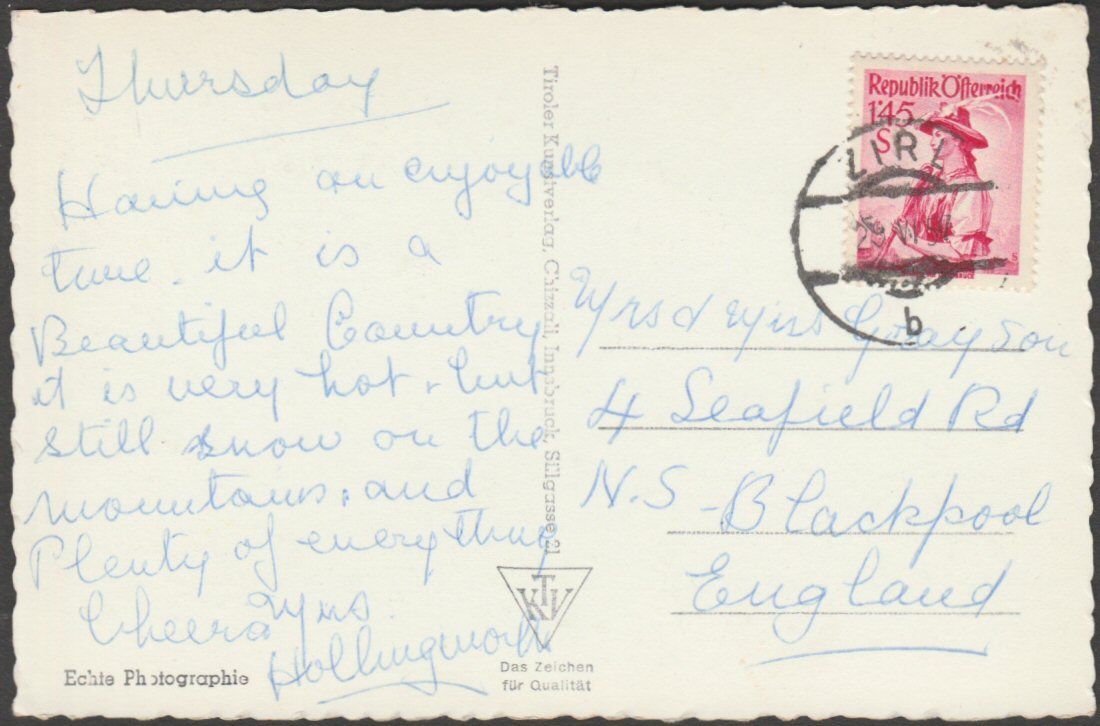 Thursday
Having an enjoyable
time. it is a
Beautiful Country
it is very hot, but
still snow on the
mountains, and
Plenty of everything
Cheers Mrs
Hollingworth
Echte Photographie
Tiroler Kunstverlag, Chizzali, Innsbruck, Sillgasse 21
KTV
Das Zeichen
für Qualität
Republik Österreich
1'45
S
ZIRL
b
Mrs & Mrs Grayson
4 Seafield Rd
N.S- Blackpool
England